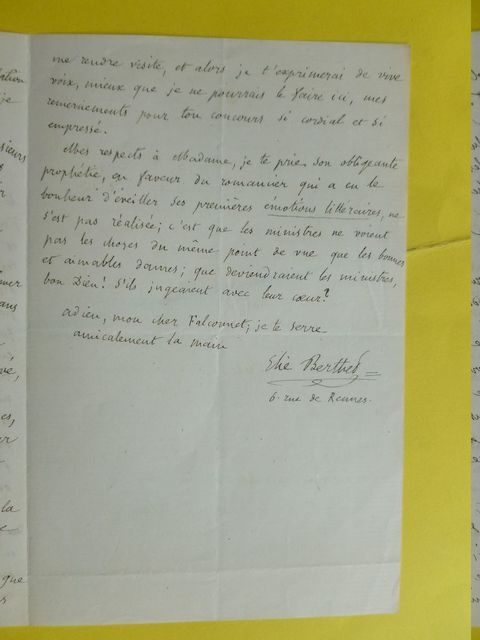 me rendre visite, et alors je t'exprimerai de vive
voix, mieux que je ne pourrais le faire ici, mes
remerciements pour ton concours si cordial et si
empressé.
Mes respects à Madame, je te prie. son obligeante
prophétie, en faveur du romancier qui a eu le
bonheur d'éveiller ses premières émotions littéraires, ne
s'est pas réalisée; c'est que les ministres ne voient
pas les choses du même point de vue que les bonnes
et aimables dames; que deviendraient les ministres,
bon Dieu! S'ils jugeaient avec leur cœur?
adieu, mon cher Falconnet; je te serre
amicalement la main
Elie Berthet
6 rue de Rennes.